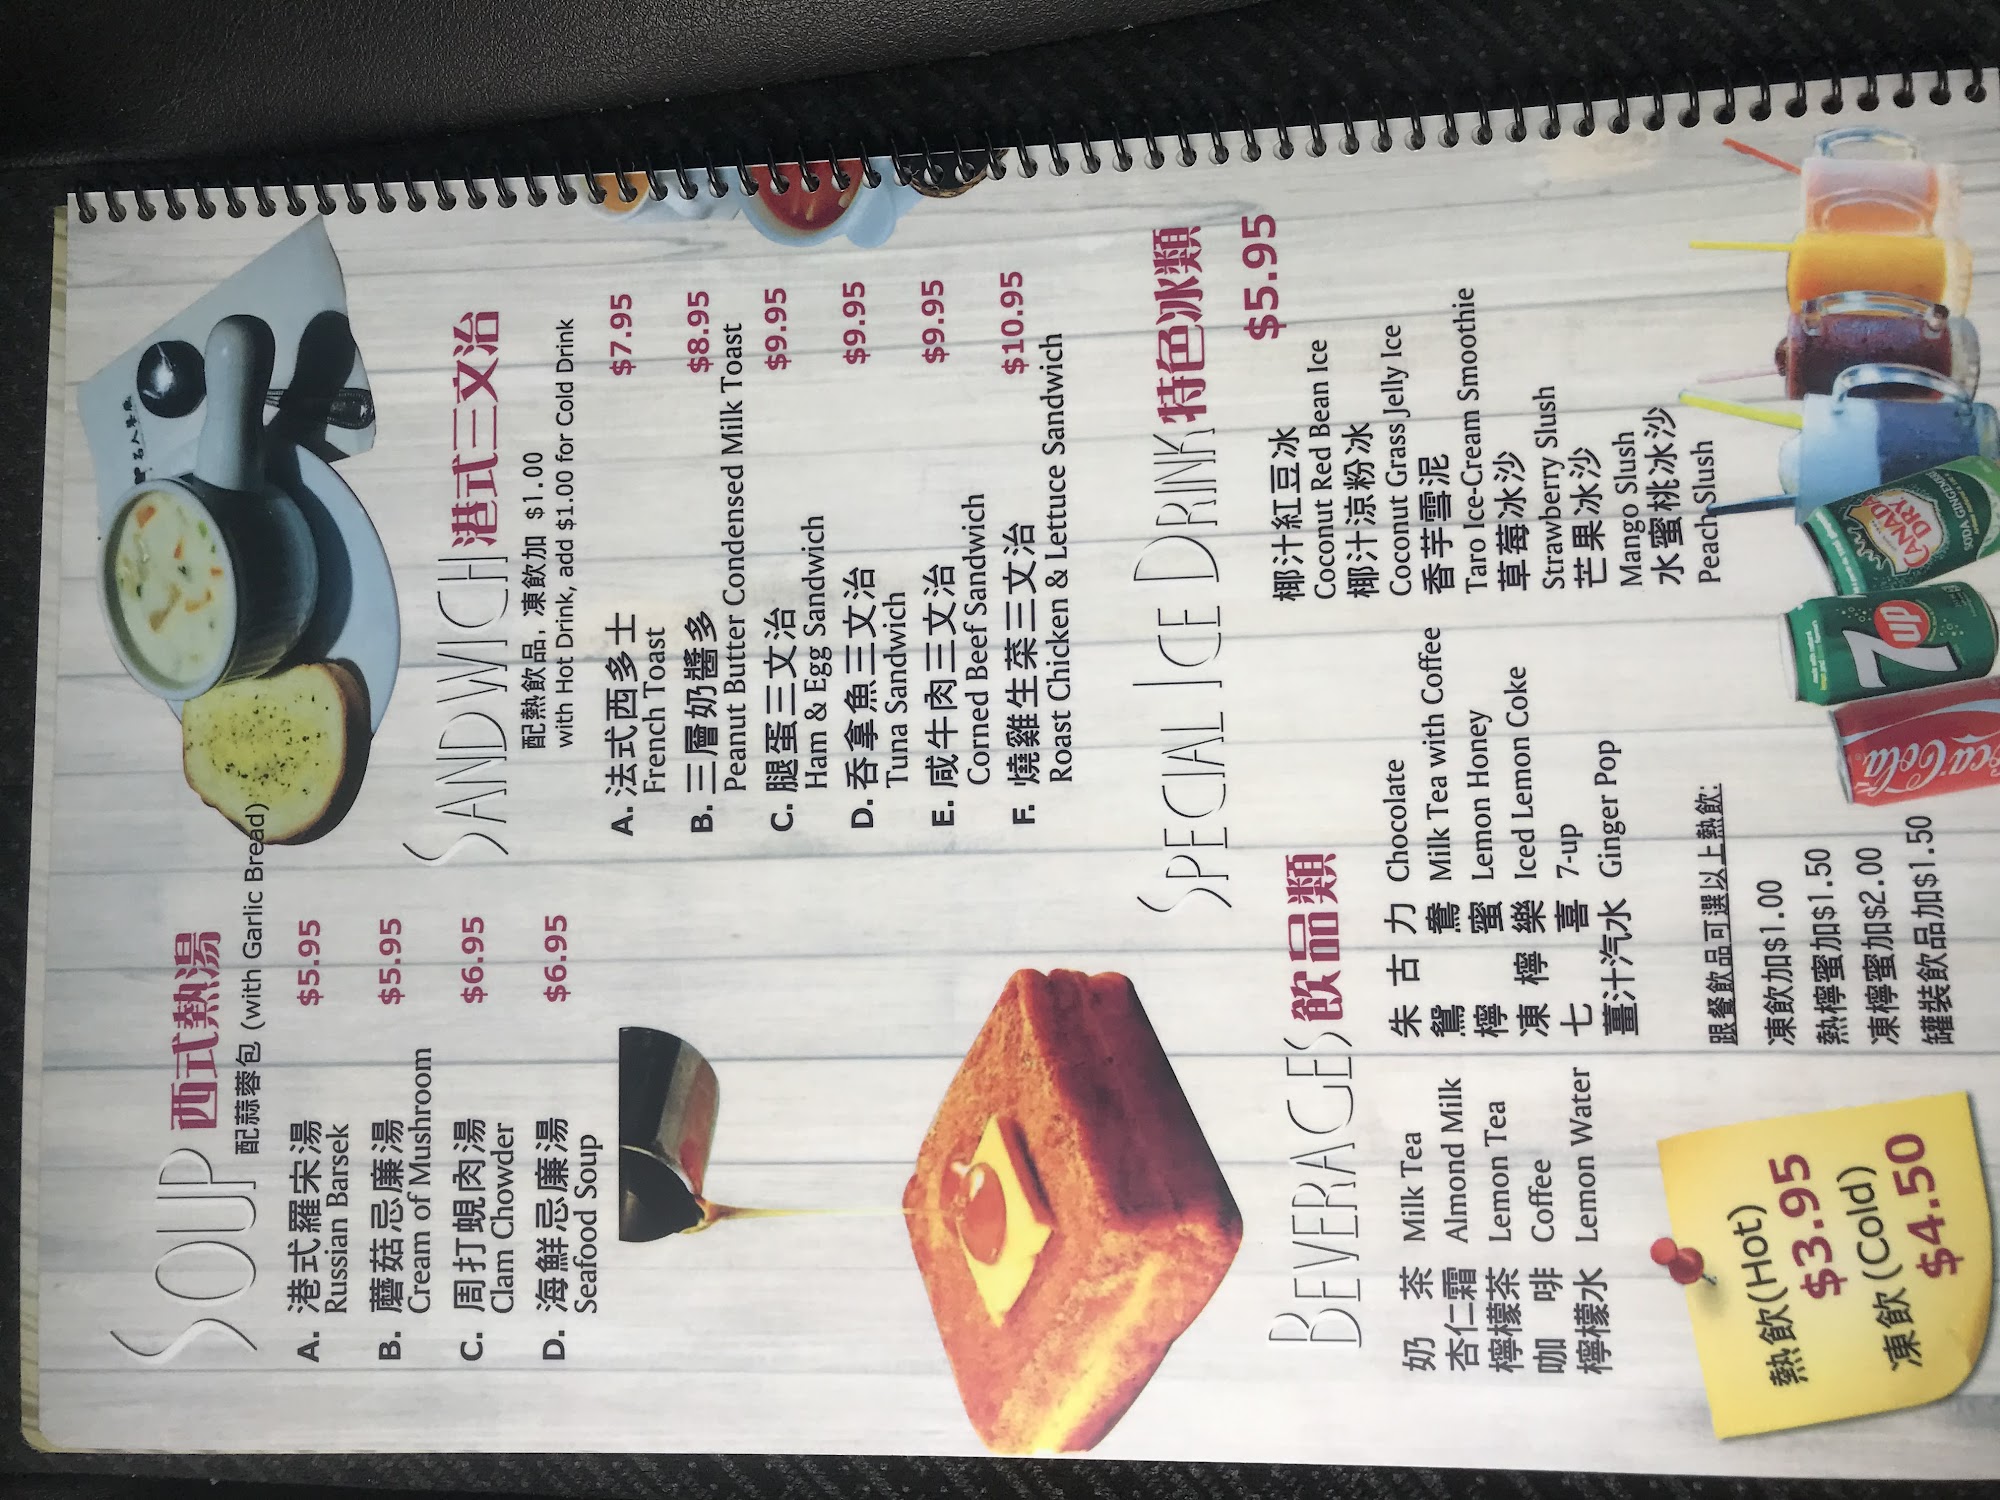 SOUP 西式熱湯
配蒜蓉包 (with Garlic Bread)
A. 港式羅宋湯 $5.95
Russian Barsek
B. 蘑菇忌廉湯 $5.95
Cream of Mushroom
C. 周打蜆肉湯 $6.95
Clam Chowder
D. 海鮮忌廉湯 $6.95
Seafood Soup
SANDWICH 港式三文治
配熱飲品, 凍飲加 $1.00
with Hot Drink, add $1.00 for Cold Drink
A. 法式西多士 $7.95
French Toast
B. 三層奶醬多 $8.95
Peanut Butter Condensed Milk Toast
C. 腿蛋三文治 $9.95
Ham & Egg Sandwich
D. 吞拿魚三文治 $9.95
Tuna Sandwich
E. 咸牛肉三文治 $9.95
Corned Beef Sandwich
F. 燒雞生菜三文治 $10.95
Roast Chicken & Lettuce Sandwich
BEVERAGES 飲品類
奶茶 Milk Tea
杏仁霜 Almond Milk
檸檬茶 Lemon Tea
咖啡 Coffee
檸檬水 Lemon Water
朱古力 Chocolate
鴛鴦 Milk Tea with Coffee
檸蜜 Lemon Honey
凍檸樂 Iced Lemon Coke
七喜 7-up
薑汁汽水 Ginger Pop
熱飲(Hot)
$3.95
凍飲(Cold)
$4.50
跟餐飲品可選以上熱飲:
凍飲加$1.00
熱檸蜜加$1.50
凍檸蜜加$2.00
罐裝飲品加$1.50
SPECIAL ICE DRINK 特色冰類
$5.95
椰汁紅豆冰
Coconut Red Bean Ice
椰汁涼粉冰
Coconut Grass Jelly Ice
香芋雪泥
Taro Ice-Cream Smoothie
草莓冰沙
Strawberry Slush
芒果冰沙
Mango Slush
水蜜桃冰沙
Peach Slush
CANADA
DRY
7up
Coca-Cola